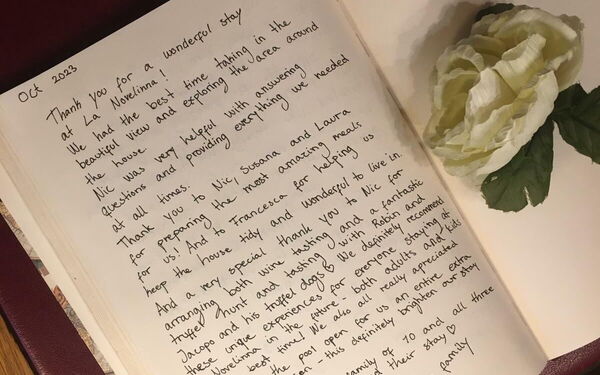 Oct 2023
Thank you for a wonderful stay
at La Novelinna!
We had the best time taking in the
beautiful view and exploring the area around
the house.
Nic was very helpful with answering
questions and providing everything we needed
at all times.
Thank you to Nic, Susana and Laura
for preparing the most amazing meals
for us! And to Francesca for helping us
keep the house tidy and wonderful to live in.
And a very special thank you to Nic for
arranging both wine tasting and a fantastic
truffel hunt and tasting with Robin and
Jacopo and his truffel dogs♡ We definitely recommend
these unique experiences for everyone staying at
Novelinna in the future - both adults and kids
best time! We also all really appreciated
the pool open for us an entire extra
- this definitely brighten our stay
family of 10 and all three
their stay♡
family